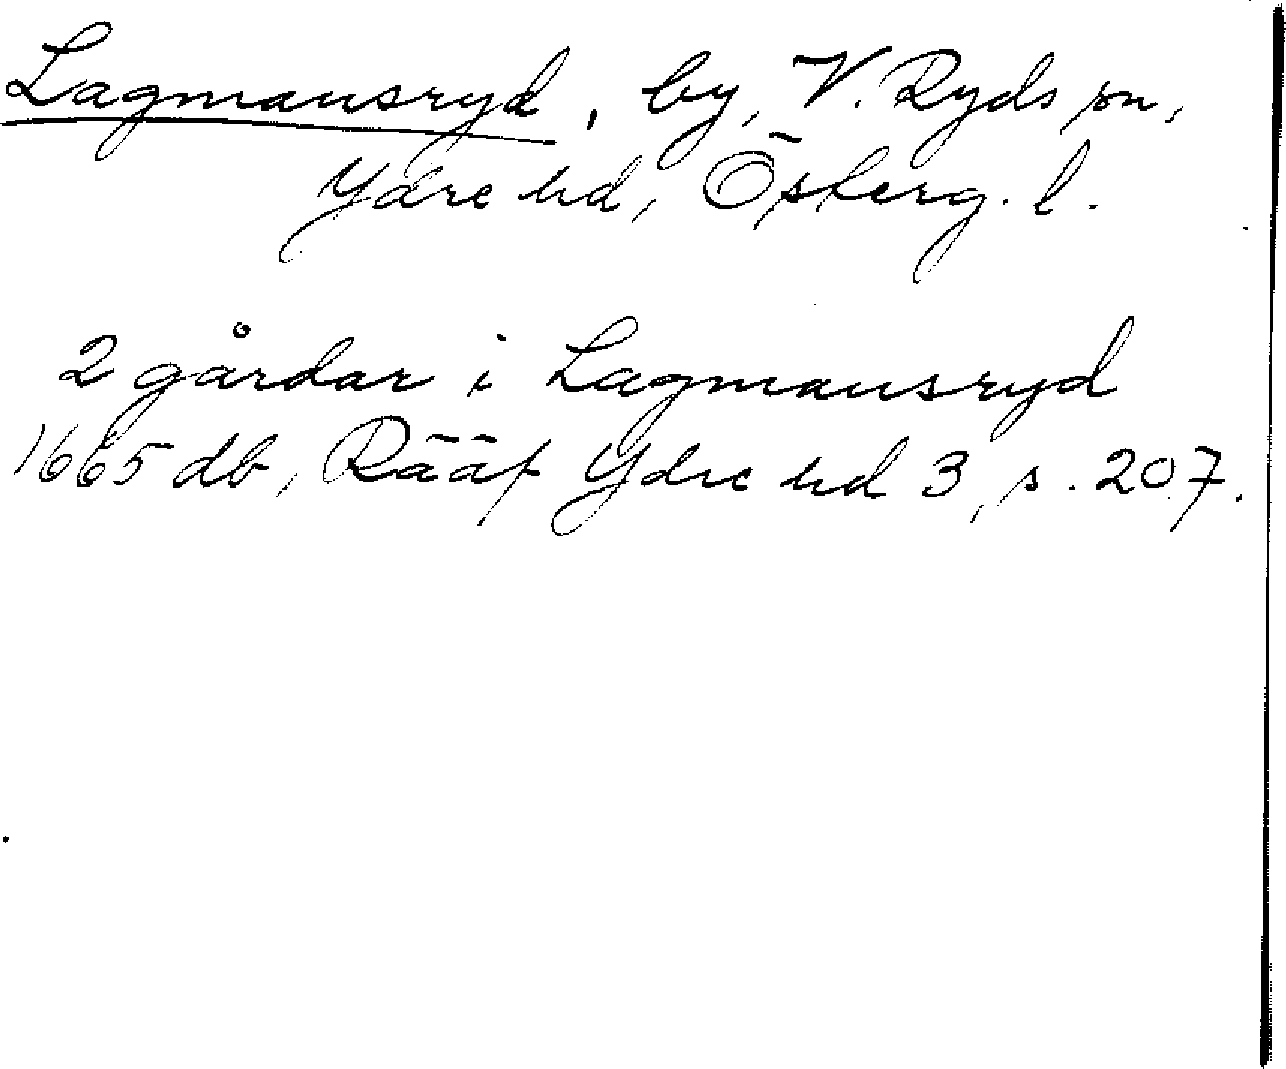 Lagmansryd, by, V. Ryds sn,
Ydre hd, Österg. l.
2 gårdar i Lagmansryd
1665 db, Rääf Ydre hd 3, s. 207.